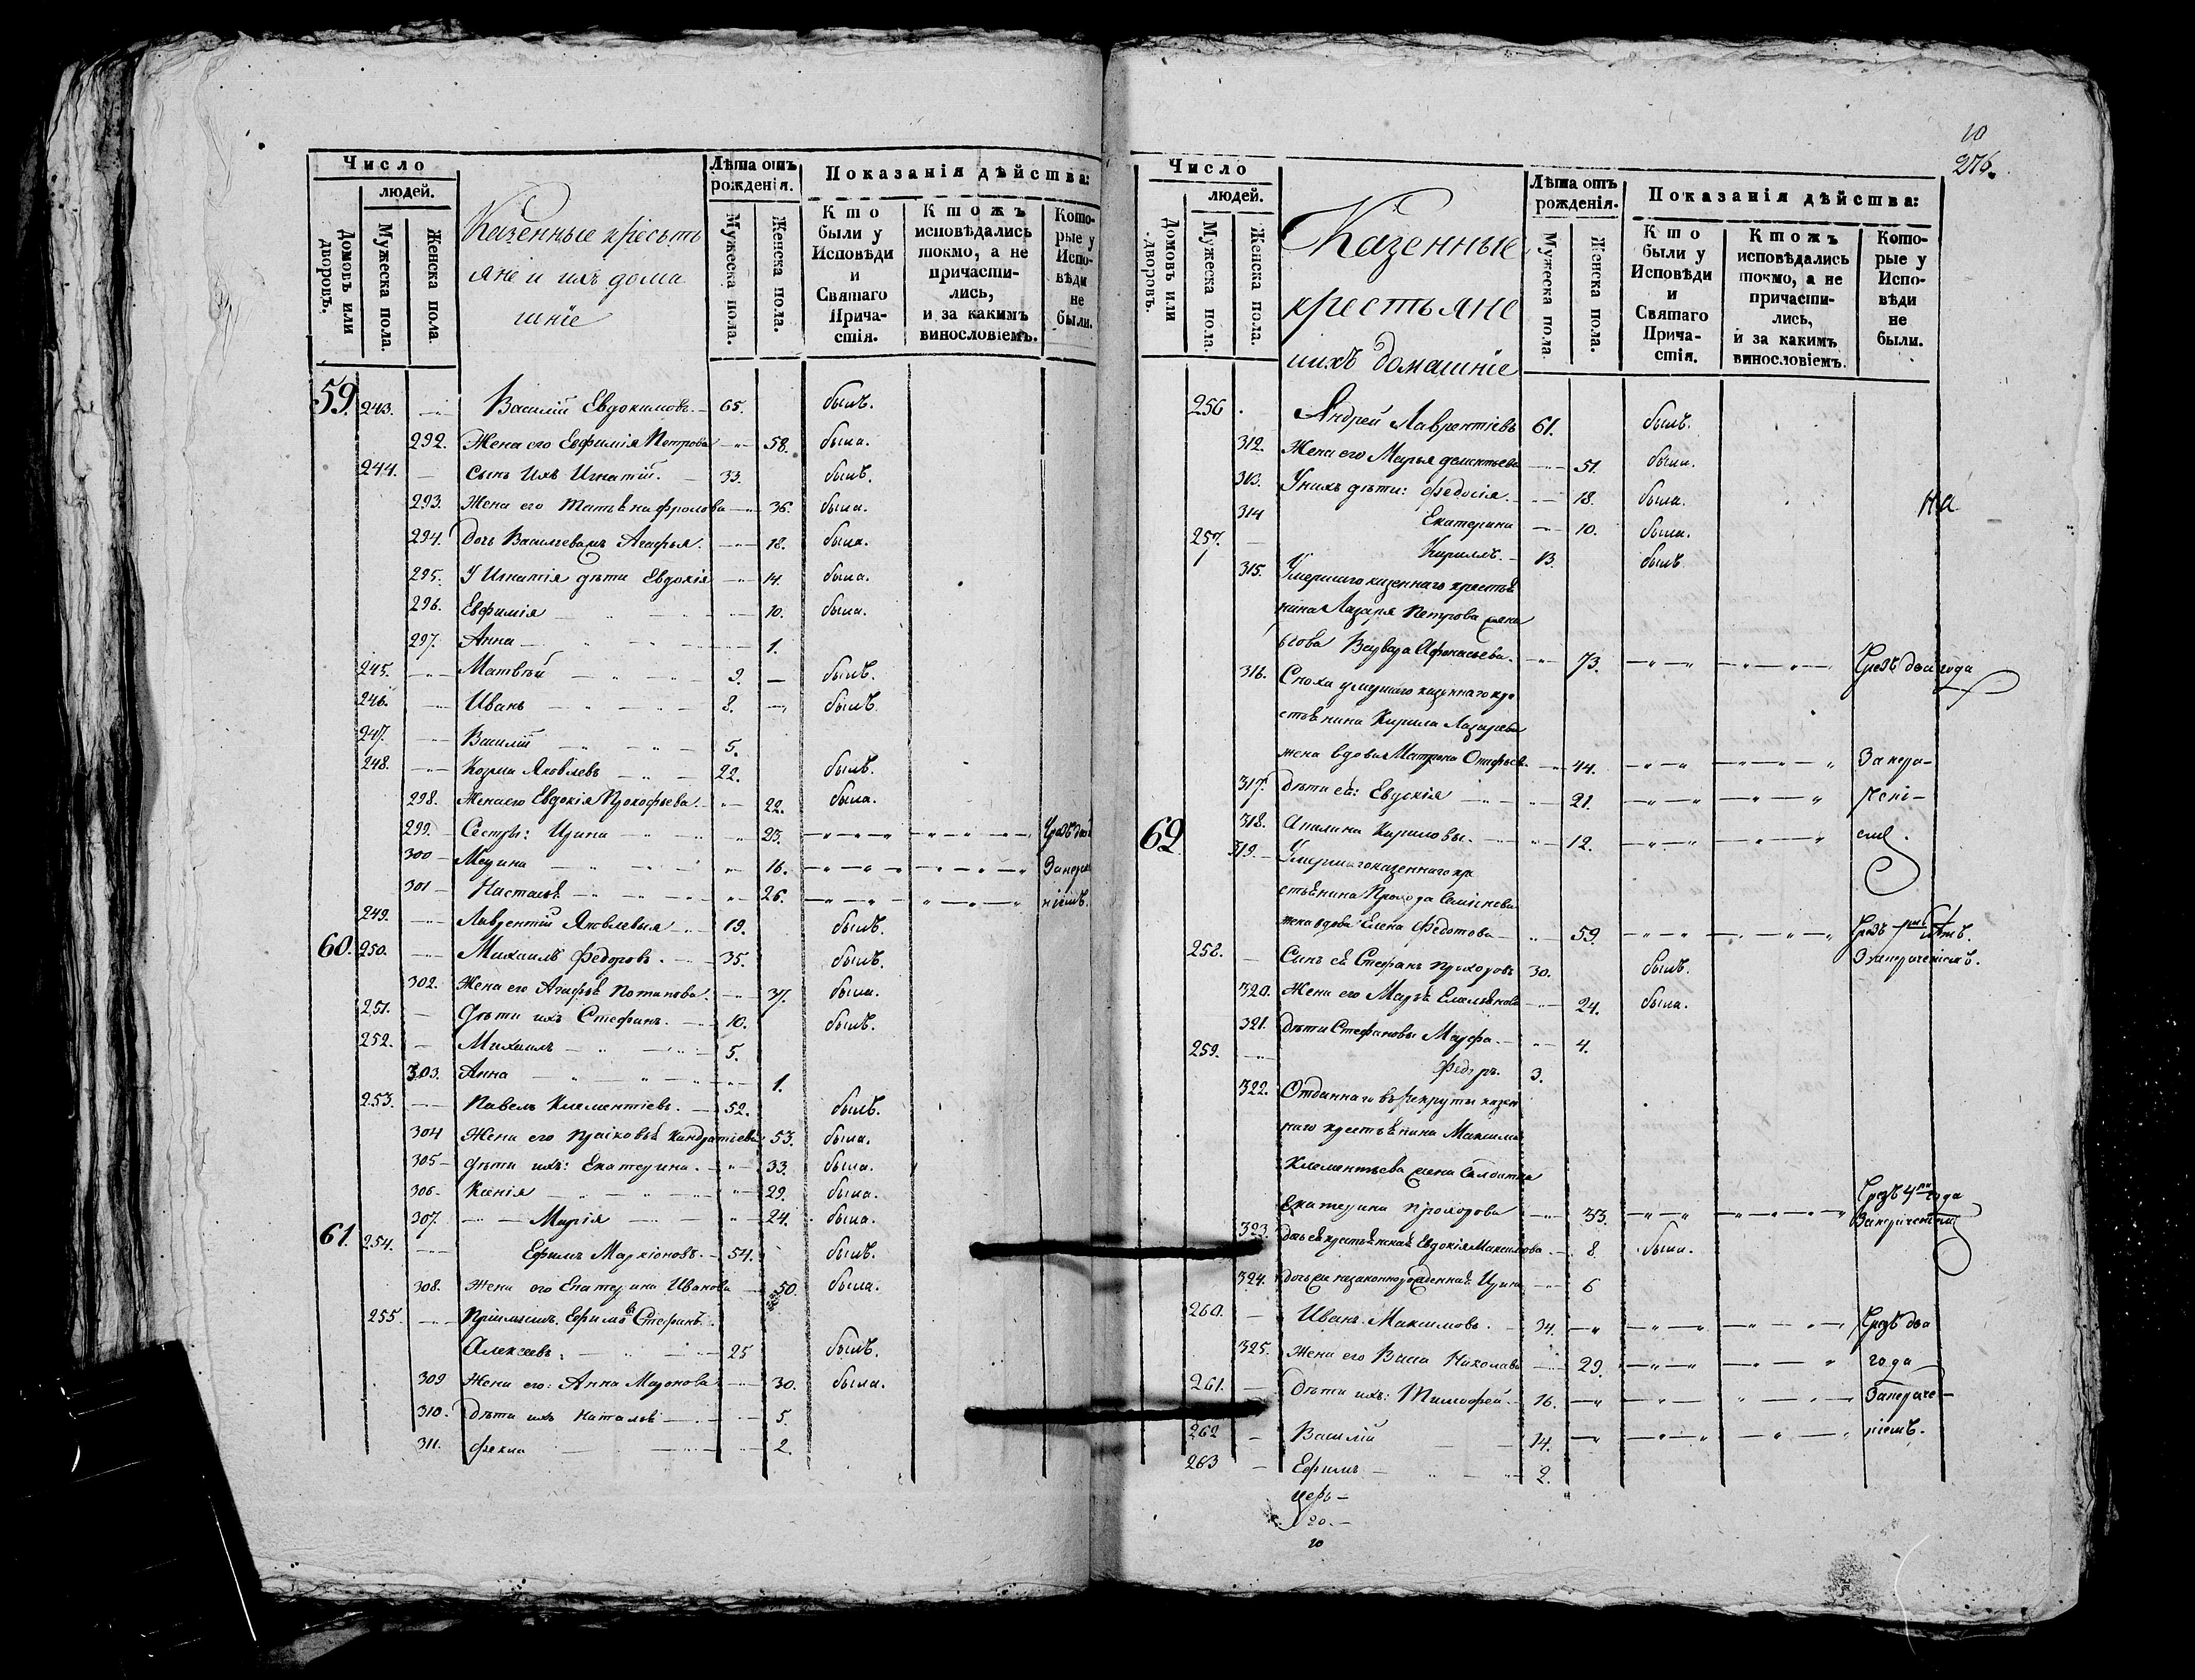 Число
людей.
Домовъ или дворовъ.
Мужеска пола.
Женска пола.
Казенные кресьть
яне и ихъ дома
шніе
Лѣта отъ рожденія.
Мужеска пола.
Женска пола.
Показанія дѣйства:
Кто были у Исповѣди и Святаго Причастія.
Ктожъ исповѣдались токмо, а не причастились, и за какимъ винословіемъ.
Которые у Исповѣди не были.
59. 243. Василій Евдокимовъ. 65. былъ.
292. Жена его Евфимія Петрова 58. была.
244. Сынъ Ихъ Игнатій. 33. былъ.
293. Жена его Татьѣна Фролова 36. была.
294. Дочь Васильева Агафья. 18. была.
295. У Игнатія дѣти Евдокія 14. была.
296. Евфимія 10. была.
297. Анна 1.
245. Матвѣй 9. былъ.
246. Иванъ 8. былъ.
247. Василій 5.
248. Козма Яковлевъ 22. былъ.
298. Жена его Евдокія Прокофьева. 22. была.
299. Сестры: Ирина 23.
300 16.
301 Настасьѣ 26.
249. Лаврентій Яковлевыя 19. былъ.
60. 250. Михаилъ Федоровъ. 35. былъ.
302. Жена его Агафьѣ Потапова. 37. была.
251. Дѣти ихъ Стефанъ. 10. былъ.
252. Михаилъ 5.
303. Анна 1.
253. Павелъ Клементіевъ. 52. былъ.
304 Жена его Кандратіева 53. была.
305 Дѣти ихъ: Екатерина. 33. была.
306 Ксенія 29. была.
307. Марія 24. была.
61. 254. Ефимъ Маркіоновъ. 54. былъ.
308. Жена его Екатерина Иванова 50. была.
255. Ефимовъ Стефанъ
Алексеевъ. 25 былъ.
309 Жена его: Анна 30. была.
310. Дѣти ихъ Натальѣ 5.
311. Фекла 2.
10
276.
Число
людей.
Домовъ или дворовъ.
Мужеска пола.
Женска пола.
Казенные
крестьяне
иихъ домашніе
Лѣта отъ рожденія.
Мужеска пола.
Женска пола.
Показанія дѣйства:
Кто были у Исповѣди и Святаго Причастія.
Ктожъ исповѣдались токмо, а не причастились, и за какимъ винословіемъ.
Которые у Исповѣди не были.
256 Андрей Лаврентіевъ 61. былъ.
312. Жена его Марья Дементьева 51. была.
313. Унихъ дѣти: Федосія. 18. была.
314 Екатерина 10. была.
257. Кириллъ. 13. былъ
315. Умершаго казеннаго крестьѣ
нина Лазаря Петрова жена
вдова Варвара Афонасьева. 73.
316. Сноха умершаго казеннаго кре
стьѣнина Кирила Лазарева
жена вдова Матрона 44.
317. Дѣти еѣ: Евдокія 21.
62 318. Кириловы. 12.
319. Умершаго казеннаго кре
стьѣнина Прохора Семіонова
жена вдова Елена Федотова 59.
258. Сынъ еѣ Стефанъ Прохоровъ 30. былъ.
320. Жена его Марьѣ Емельѣнова 24. была.
321. Дѣти Стефановы Марфа. 4.
259. Федоръ. 3.
322. Отданнаго въ рекруты казен
наго крестьѣнина Максима
Клементьева жена Салдатка
Екатерина Прохорова 33.
323. Дочь еѣ крестьѣнскаѣ Евдокія Максимова 8. была.
324. Дочь еѣ незаконнорожденнаѣ Ирина 6
260. Иванъ Максимовъ. 34. Чрезъ два
325. Жена его Васса Николаева 29. года
261. Дѣти ихъ: Тимофей. 16.
262 Василій 14.
263 Ефимъ 2.
20.
20